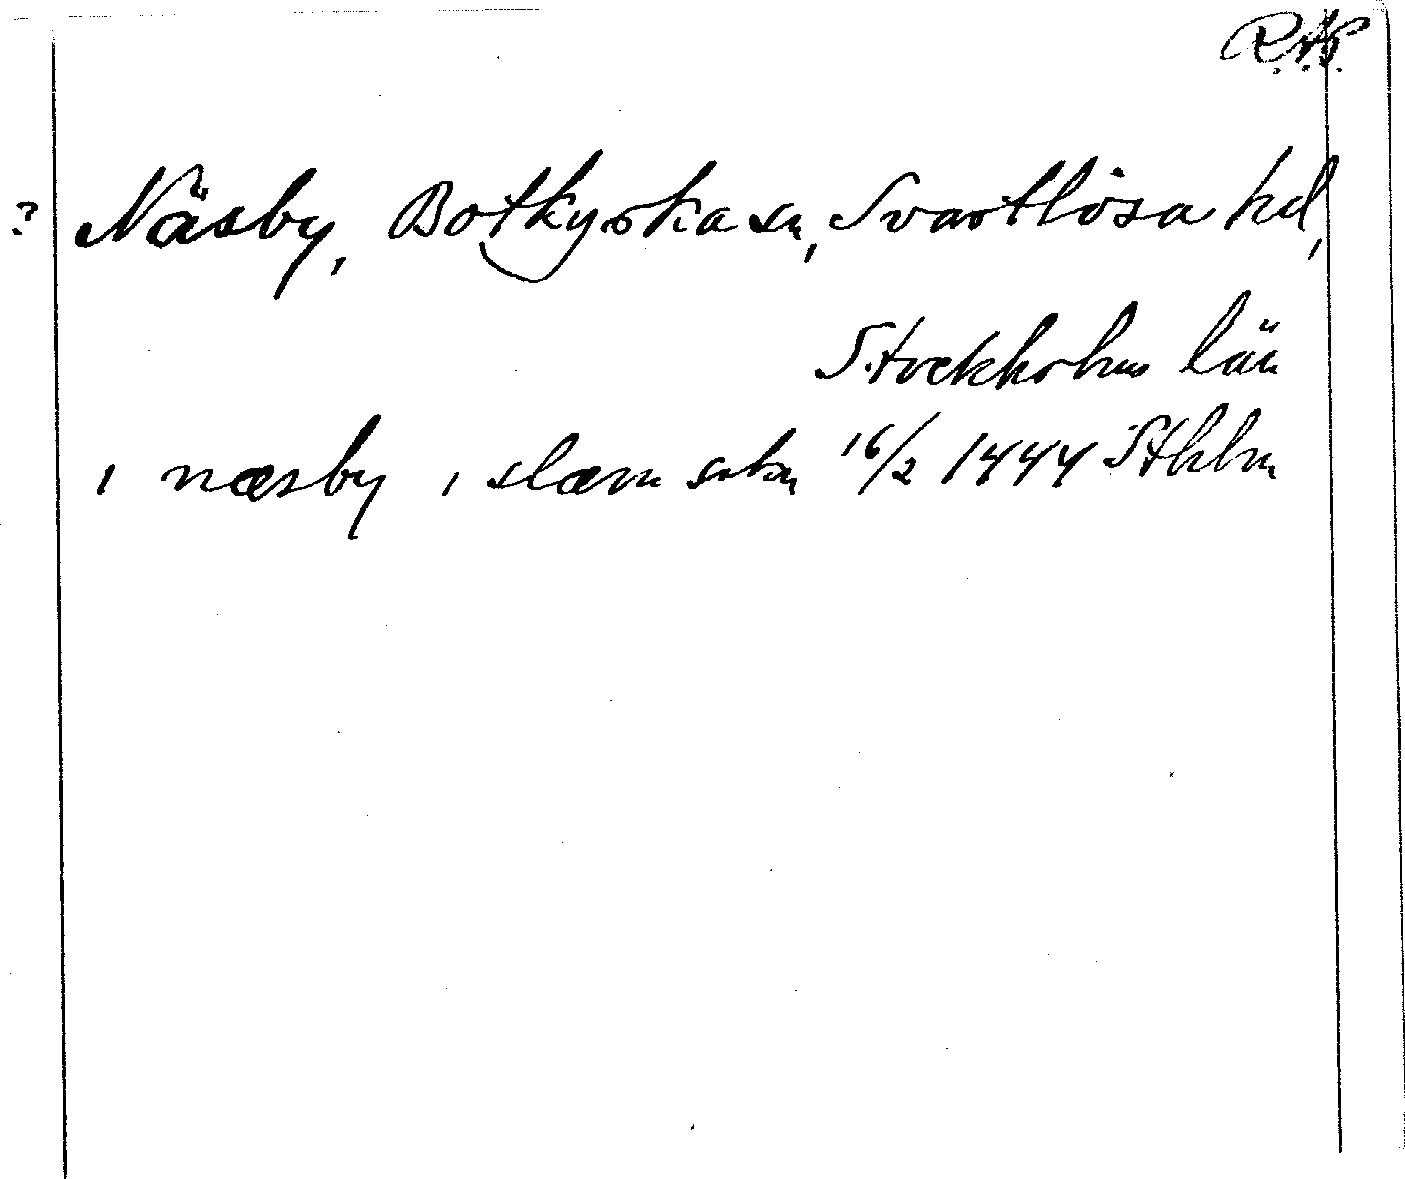 R.A.P.
? Näsby, Botkyrka sn, Svartlösa hd,
Stockholms län
i næsby i slæm sokn 16/2 1444 Sthlm